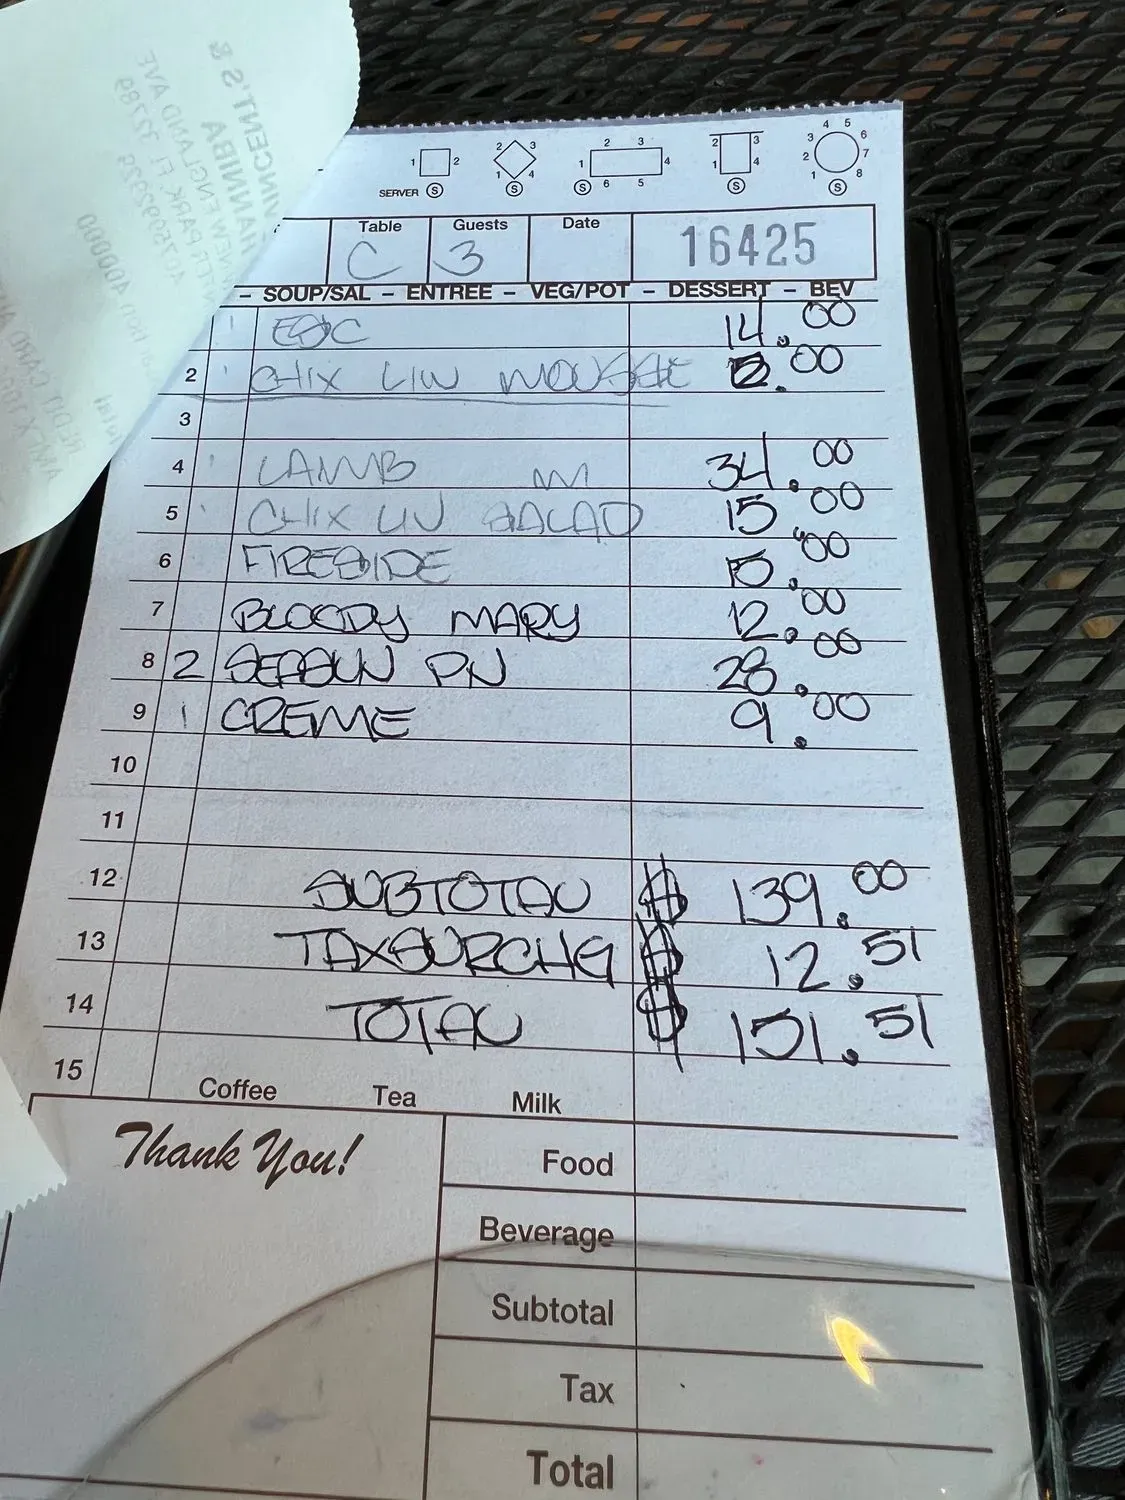 VINCENT'S &
HANNIBA
W NEW ENGLAND AVE
ER PARK FL 32789
4075992929
SERVER S S S S S
Table Guests Date
C 3 16425
- SOUP/SAL - ENTREE - VEG/POT - DESSERT - BEV
1 ESC 14.00
2 1 CHIX LIV MOUSSE .00
3
4 1 LAMB M 34.00
5 1 CHIX LIV SALAD 15.00
6 FIRESIDE .00
7 BLOODY MARY 12.00
8 2 PN 28.00
9 1 CREME 9.00
10
11
12 SUBTOTAL $ 139.00
13 TAXSURCHG $ 12.51
14 TOTAL $ 151.51
15
Coffee Tea Milk
Thank You!
Food
Beverage
Subtotal
Tax
Total